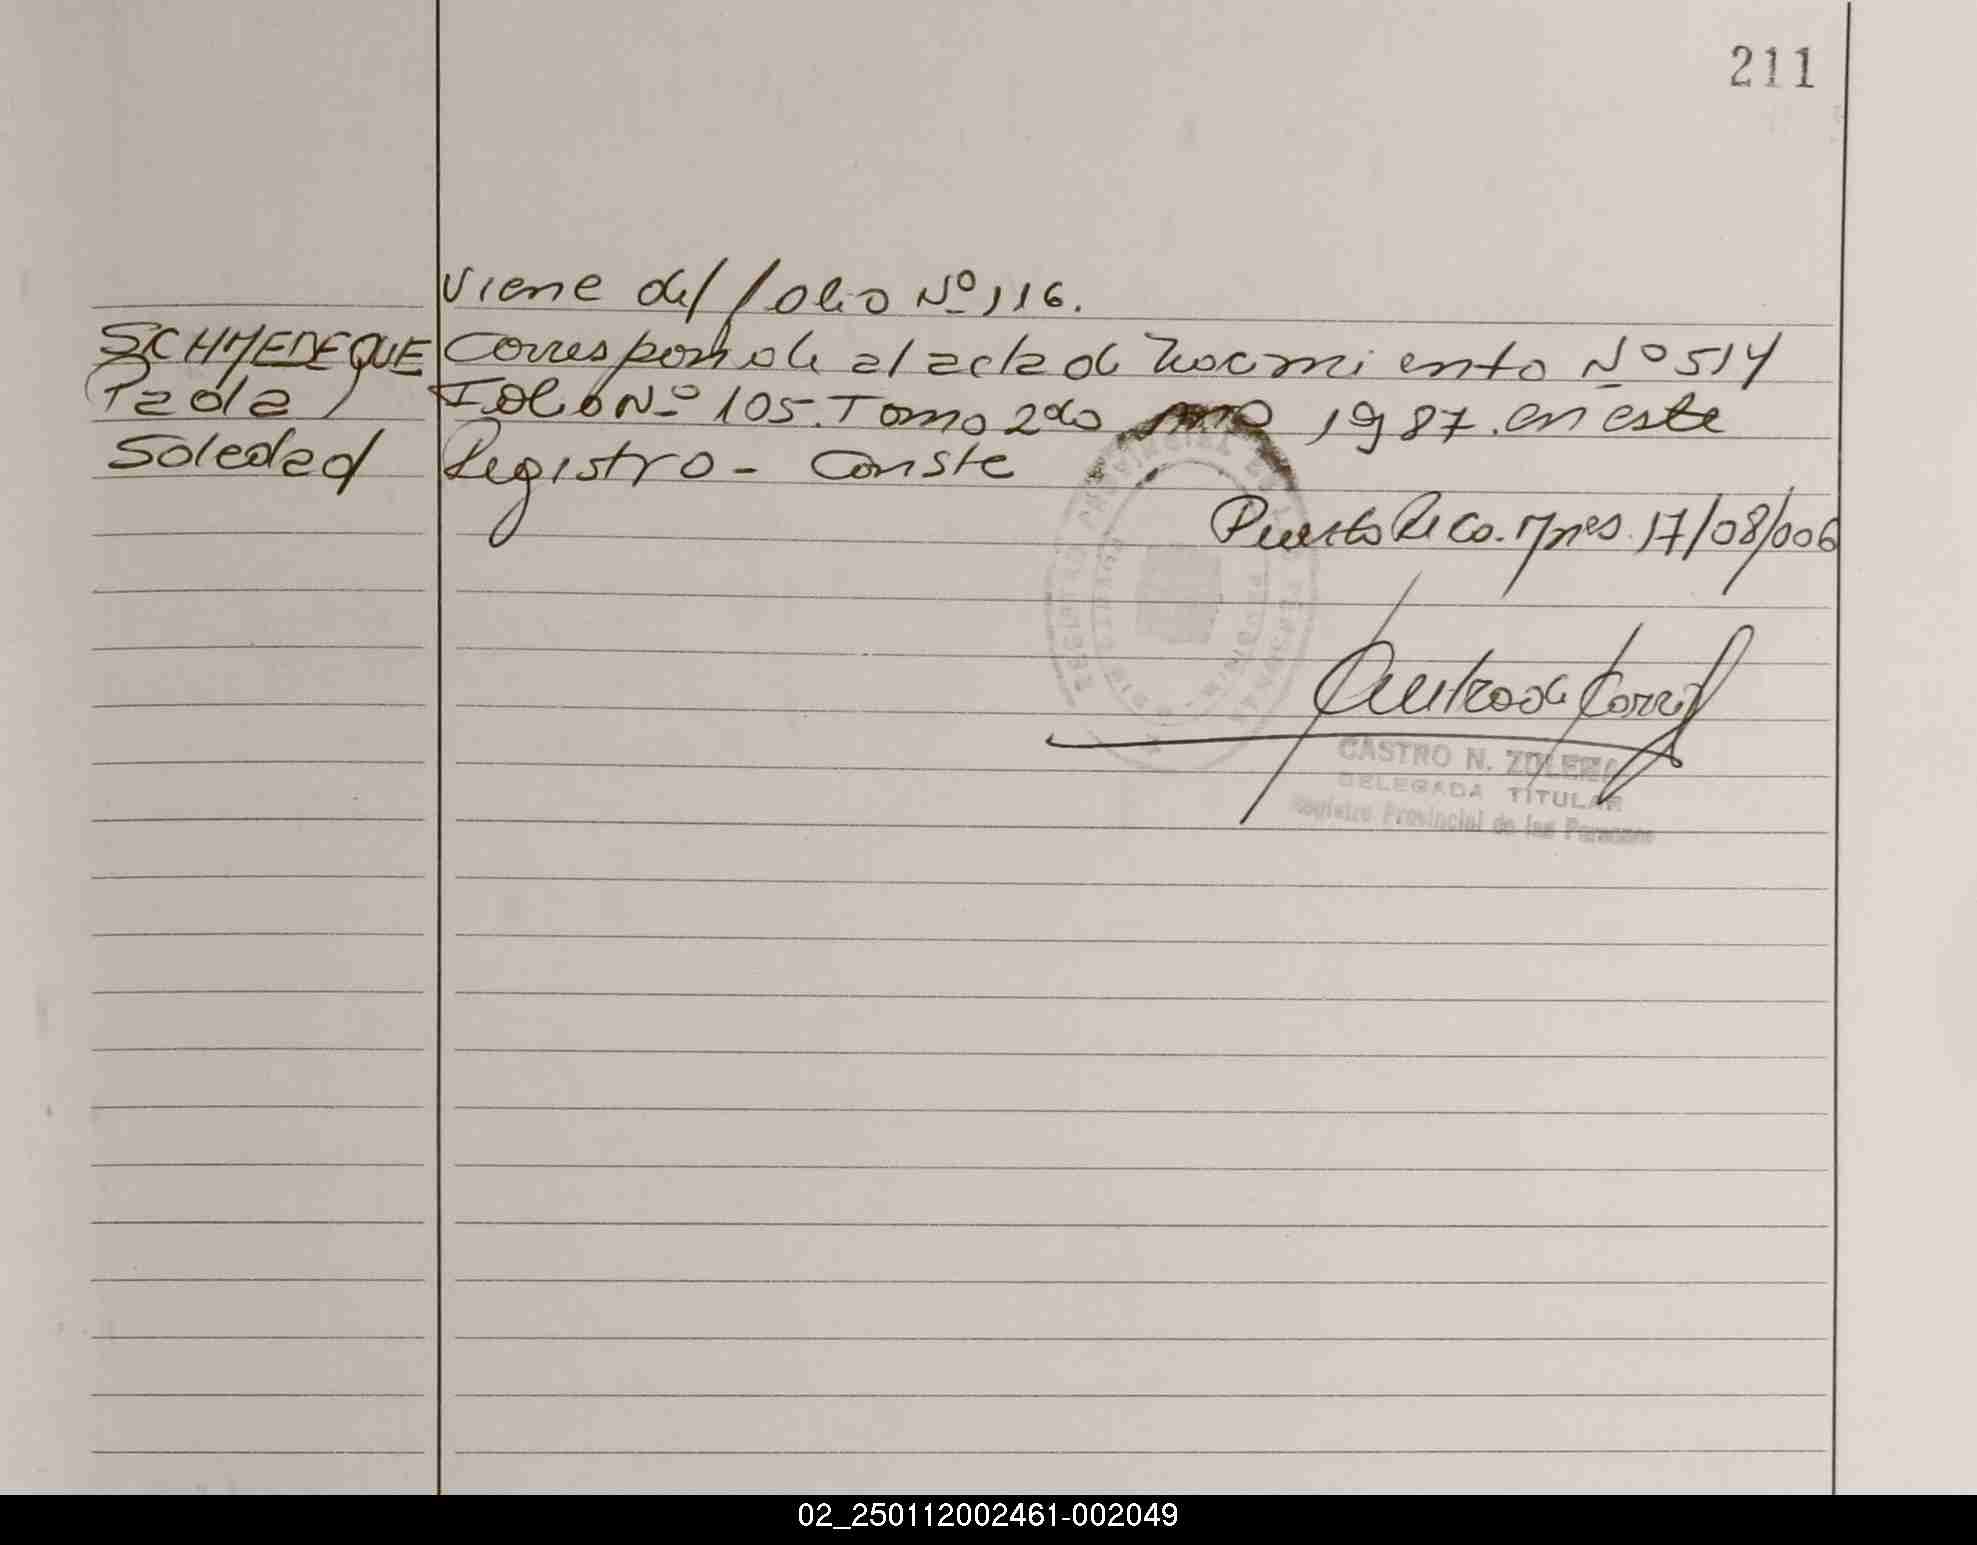 211
Viene del folio Nº 116.
SCHMEDEQUE Corresponde al acta de Nacimiento Nº 514
Paola Folio Nº 105. Tomo 2do Año 1987. en este
Soledad Registro - Conste
Puerto Rico. Mnes. 17/08/006
CASTRO N. ZULEMA
DELEGADA TITULAR
Registro Provincial de las Personas
02_250112002461-002049